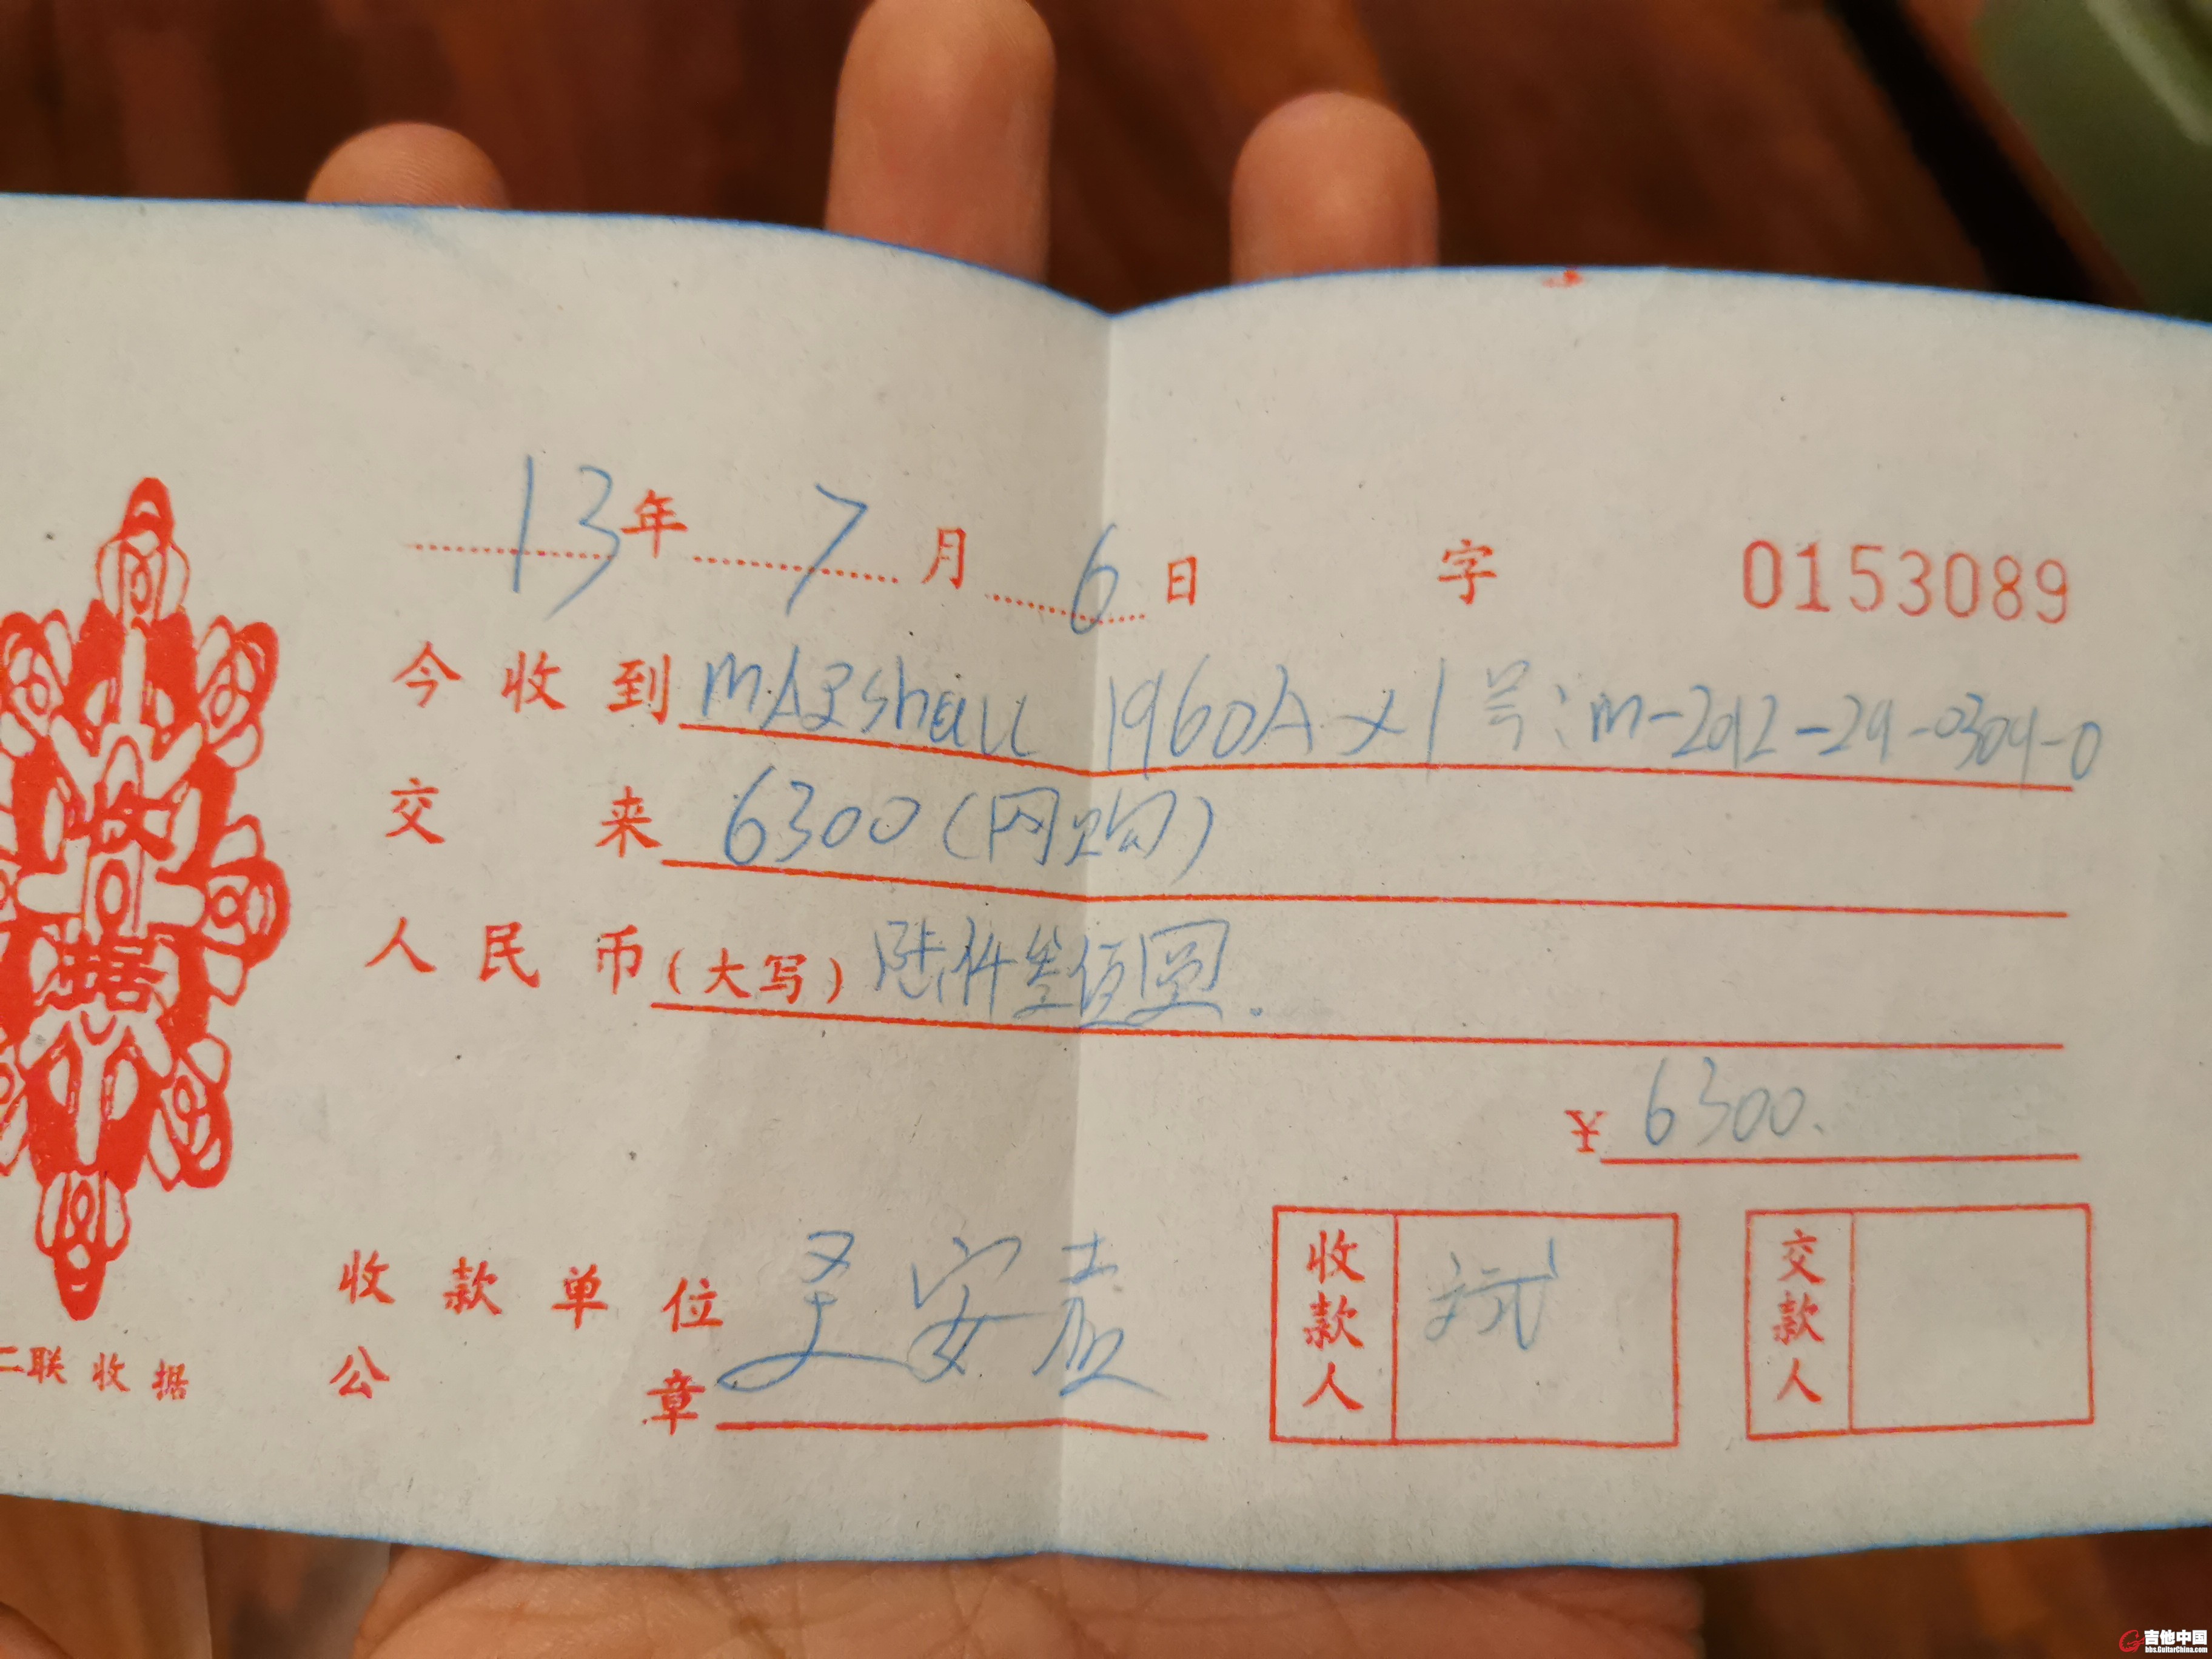 13年7月6日 字 0153089
今收到 MARshall 1960A x1 号:m-2012-29-0304-0
交来 6300(网购)
人民币(大写) 陆仟叁佰圆.
¥ 6300.
收据
收款单位
公章
收款人
交款人
二联收据
吉他中国
bbs.GuitarChina.com